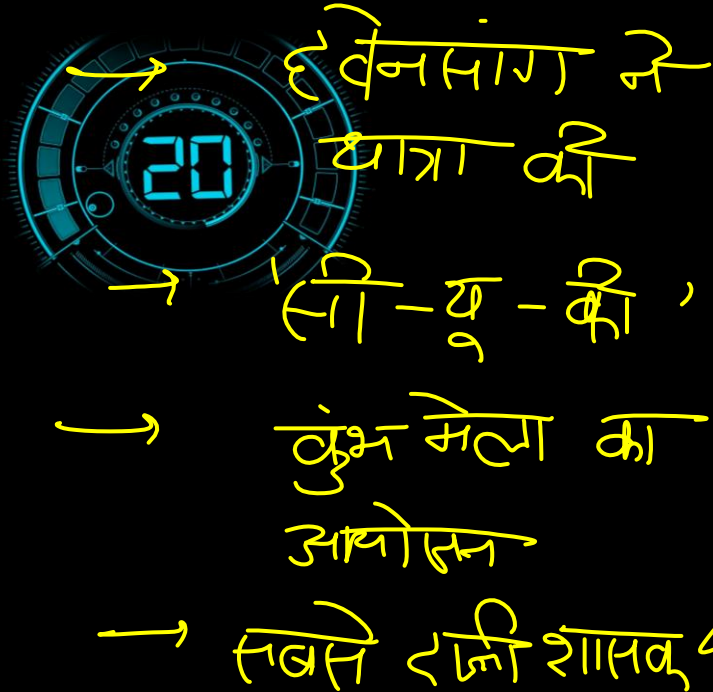 20
→ ह्वेनसांग ने
यात्रा की
→ 'सी-यू-की'
→ कुंभ मेला का
आयोजन
→ सबसे दानी शासक